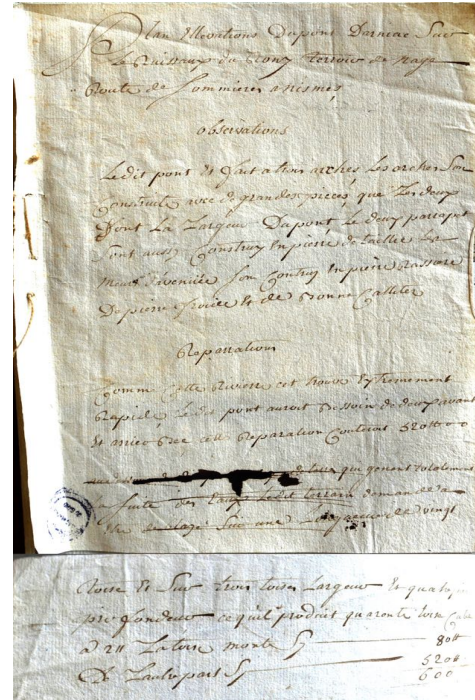 Plan Ellevations Du pont Darneac Sur
Le Ruisseau du Rony terroir de nage
Route de Sommieres a nismes
observations
Le dit pont Et fait a trois arches Les arches Son
Construite avec de grandes pieces que Les deux
Font La Largeur Du pont Le deux parapet
Sont aussy Construy En pierre de taillier Les
meurs d'avenüe Son Contruy En piere
De pierre froide Et de Bonne Calliter
Reparration
Comme cette Riviere cet trouve Extremement
Rapide Ledit pont auroit Besoin de deux avant
Et arrier Bec cette Reparation Couteroit 520
qui genent totalement
La suitte des Laditte terrain demande a
Sur une Longueur de vingt
toise Et Sur trois toises Largeur Et quatre
pié fondeur ce quil produit quarente toise Cube
a 2 La toise monte Cy 80
De Lautre part Cy 520
600